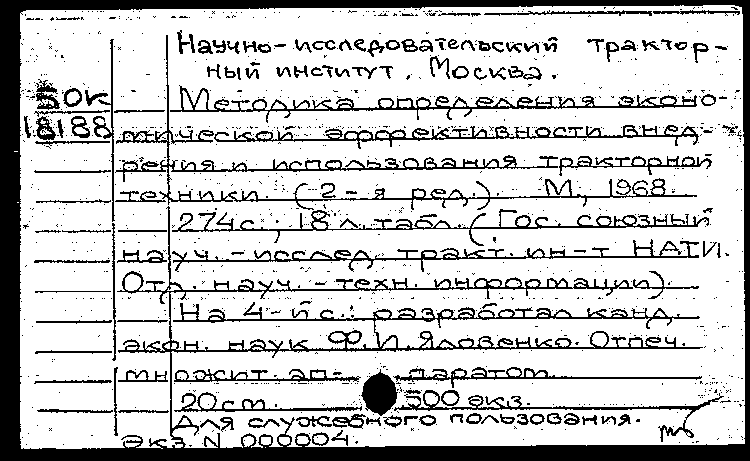 Научно-исследовательский трактор-
ный институт. Москва.
50К
18188
Методика определения эконо-
мической эффективности внед-
рения и использования тракторной
техники (2-я ред.). М., 1968.
274 с.; 18 л. табл. (Гос. союзный
науч.-исслед. тракт. ин-т НАТИ.
Отд. науч.-техн. информации).
На 4-й с.: разработал канд.
экон. наук Ф.И. Яловенко. Отпеч.
множит. ап- паратом.
20 см. 500 экз.
Для служебного пользования.
Экз. N 000004.